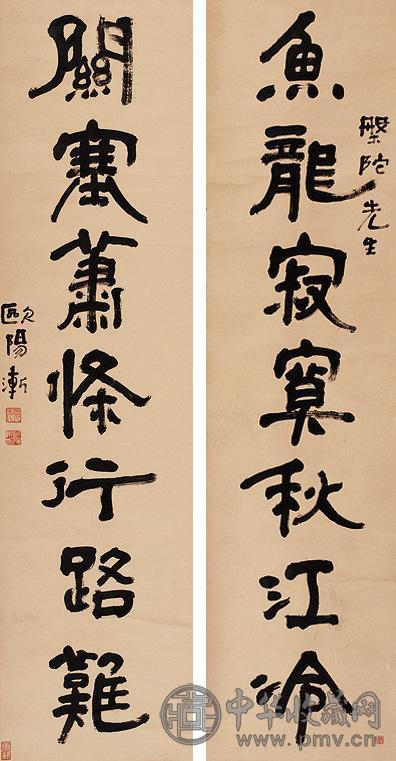 魚龍寂寞秋江冷
槃陀先生
關塞蕭條行路難
歐陽漸
中华收藏网
www.pmv.cn